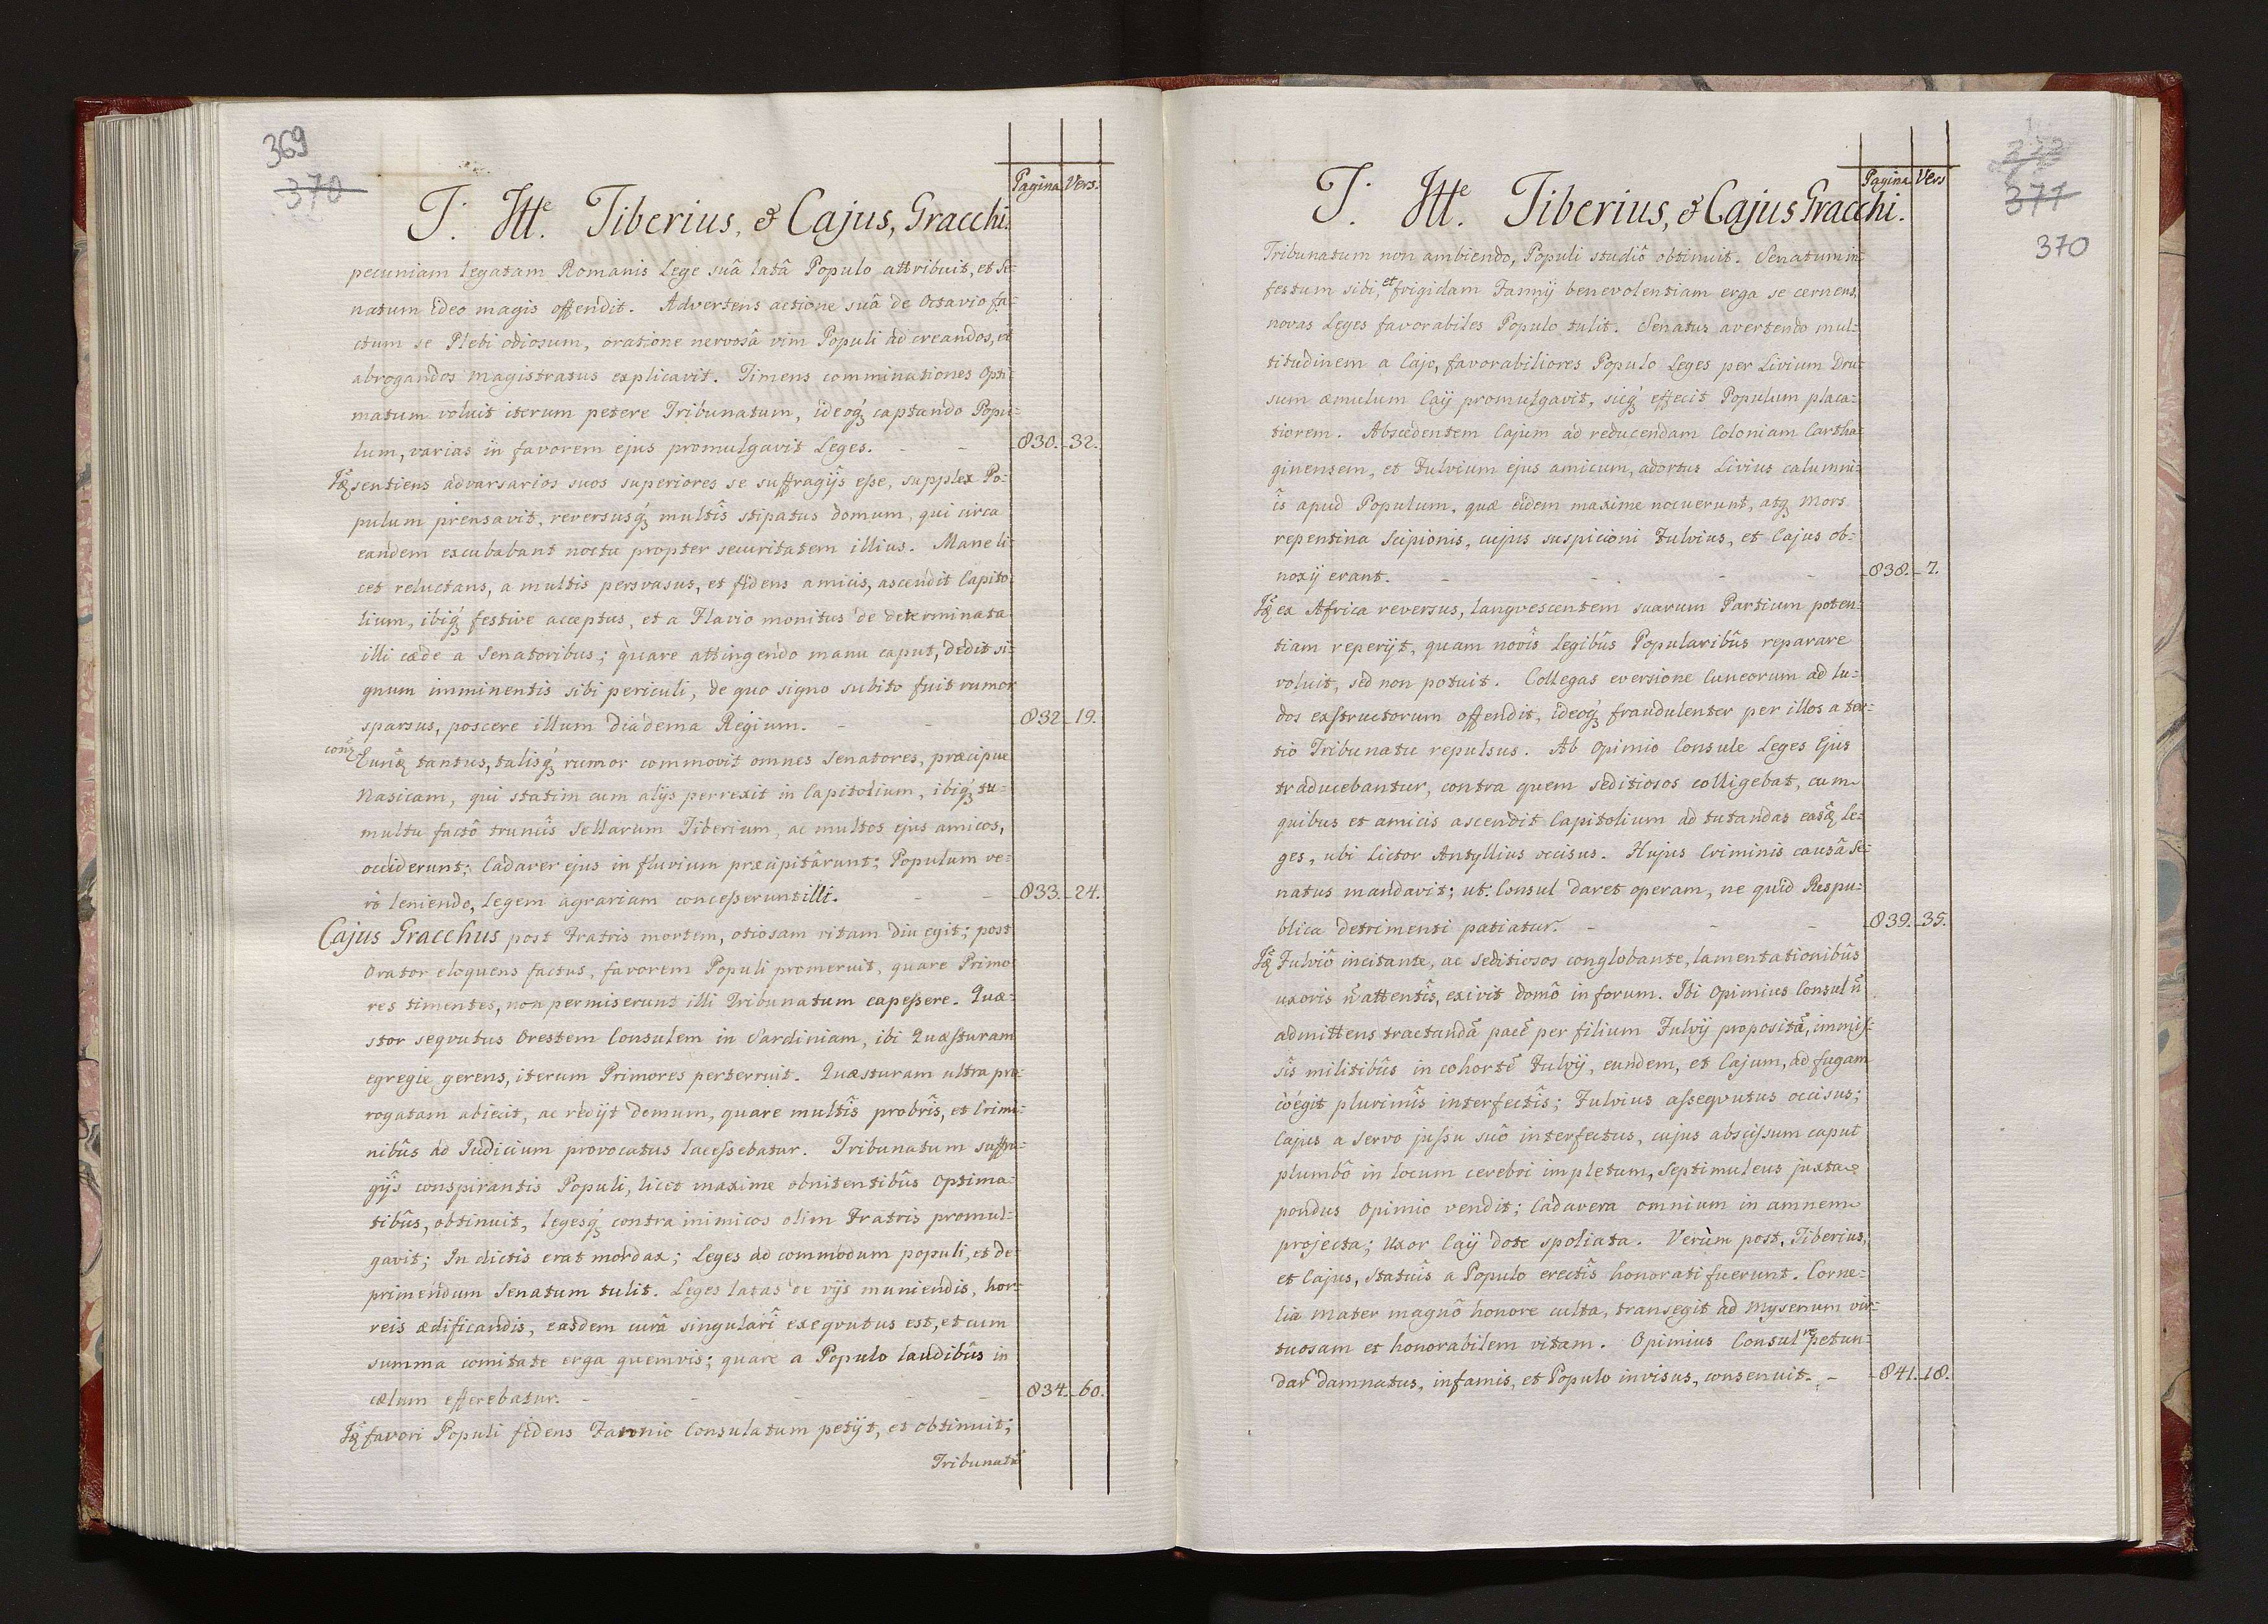 369
370
Pagina Vers.
T. Itte. Tiberius, & Cajus, Gracchi.
pecuniam legatam Romanis Lege suâ latâ Populo attribuit, et Se=
natum ideo magis offendit. Advertens actione suâ de Octavio fa=
ctum se Plebi odiosum, oratione nervosâ vim Populi ad creandos, et
abrogandos Magistratus explicavit. Timens comminationes Opti=
matum voluit iterum petere Tribunatum, ideoq́ꝫ captando Popu=
lum, varias in favorem ejus promulgavit Leges. - - 830. 32.
sentiens advarsarios suos superiores se suffragijs esse, supplex Po=
pulum prensavit, reversusq́ꝫ multîs stipatus domum, qui circa
eandem excubabant noctu propter securitatem illius. Mane li=
cet reluctans, a multis persvasus, et fidens amicis, ascendit Capito=
lium, ibiq́ꝫ festive acceptus, et a Flavio monitus de determinata
illi cæde a Senatoribus; quare attingendo manu caput, dedit si=
gnum imminentis sibi periculi, de quo signo subito fuit rumor
sparsus, poscere illum Diadema Regium. - - 832. 19.
tantus, talisq́ꝫ rumor commovit omnes Senatores, præcipue
Nasicam, qui statim cum alijs perrexit in Capitolium, ibiq́ꝫ tu=
multu factô truncîs Sellarum Tiberium, ac multos ejus amicos,
occiderunt; Cadaver ejus in fluvium præcipitârunt; Populum ve=
rò leniendo, Legem agrariam concesserunt illi. - - 833. 24.
Cajus Gracchus post Fratris mortem, otiosam vitam diu egit; post
Orator eloquens factus, favorem Populi promeruit, quare Primo=
res timentes, non permiserunt illi Tribunatum capessere. Quæ=
stor seqvutus Orestem Consulem in Sardiniam, ibi Quæsturam
egregie gerens, iterum Primores perterruit. Quæsturam ultra pro=
rogatam abiecit, ac redijt domum, quare multîs probrîs, et Crimi=
nibûs ad Judicium provocatus lacessebatur. Tribunatum suffra=
gijs conspirantis Populi, licet maxime obnitentibûs Optima=
tibûs, obtinuit, legesq́ꝫ contra inimicos olim Fratris promul=
gavit; In dictis erat mordax; Leges ad commodum populi, et de=
primendum Senatum tulit. Leges latas de vijs muniendis, hor=
reis ædificandis, easdem curâ singulari exeqvutus est, et cum
summa comitate erga quemvis; quare a Populo laudibûs in
cælum efferebatur. - - - - 834. 60.
favori Populi fidens Fannio Consulatum petijt, et obtinuit;
Tribunatū
Pagina Vers
371
370
T. Itte. Tiberius, & Cajus Gracchi.
Tribunatum non ambiendo, Populi studiô obtinuit. Senatum in=
festum sibi, et frigidam Fannij benevolentiam erga se cernens,
novas Leges favorabiles Populo tulit. Senatus avertendo mul=
titudinem a Cajo, favorabiliores Populo Leges per Livium Dru=
sum æmulum Caij promulgavit, sicq́ꝫ effecit Populum placa=
tiorem. Abscedentem Cajum ad reducendam Coloniam Cartha=
ginensem, et Fulvium ejus amicum, adortus Livius calumni=
îs apud Populum, quæ eidem maxime nocuerunt, atq́ꝫ Mors
repentina Scipionis, cujus suspicioni Fulvius, et Cajus ob=
noxij erant. - - - - 838. 7.
ex Africa reversus, langvescentem suarum Partium poten=
tiam reperijt, quam novîs Legibûs Popularibûs reparare
voluit, sed non potuit. Collegas eversione Cuneorum ad lu=
dos exstructorum offendit, ideoq́ꝫ fraudulenter per illos a ter=
tio Tribunatu repulsus. Ab Opimio Consule Leges Ejus
traducebantur, contra quem seditiosos colligebat, cum
quibus et amicis ascendit Capitolium ad tutandas Le=
ges, ubi Lictor Antyllius occisus. Hujus Criminis causâ Se=
natus mandavit; ut: Consul daret operam, ne quid Respu=
blica detrimenti patiatur. - - - 839. 35.
Fulviô incitante, ac Seditiosos conglobante, lamentationibûs
uxoris ñ attentîs, exivit domô in forum. Ibi Opimius Consul ñ
admittens tractandā pacē per filium Fulvij propositā, immis=
sîs militibûs in cohortē Fulvij, eundem, et Cajum, ad fugam
cöégit plurimîs interfectîs; Fulvius asseqvutus occisus;
Cajus a servo jussu suô interfectus, cujus abscissum caput
plumbô in locum cerebri impletum, Septimuleus juxta
pondus Opimio vendit; Cadavera omnium in amnem
projecta; Uxor Caij dote spoliata. Verùm post, Tiberius,
et Cajus, statuîs a Populo erectîs honorati fuerunt. Corne=
lia Mater magnô honore culta, transegit ad Mysenum vir=
tuosam et honorabilem vitam. Opimius Consul repetun=
dar̃ damnatus, infamis, et Populo invisus, consenuit. - 841. 18.